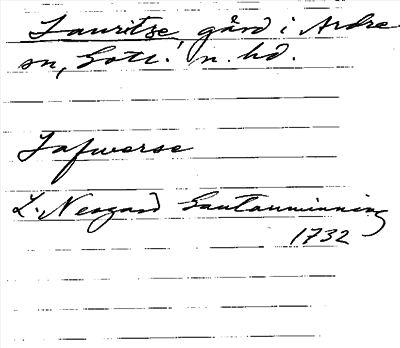 Lauritse, gård i Ardre
sn, Gotl. n. hd.
Lafwerse
L. Neogard Gautauminning
1732